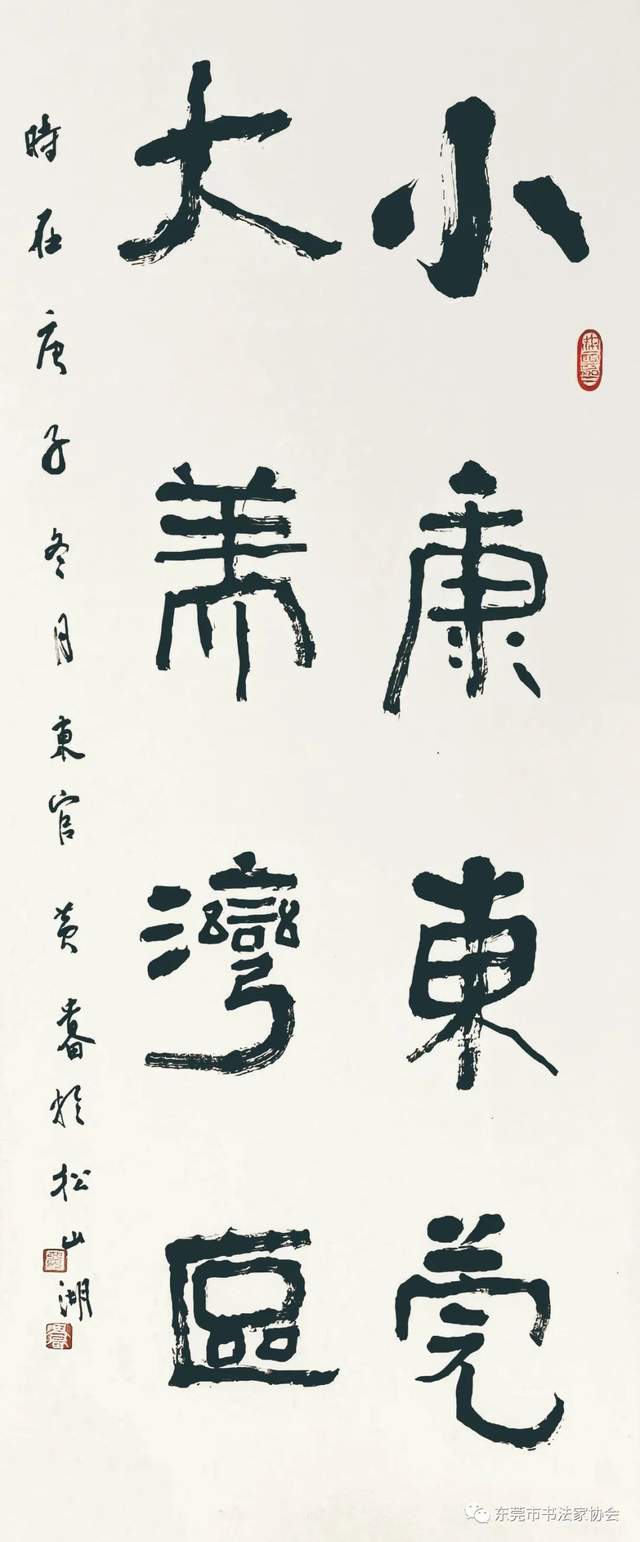 小康東莞
大美灣區
時在庚子冬月東官黄於松山湖
东莞市书法家协会